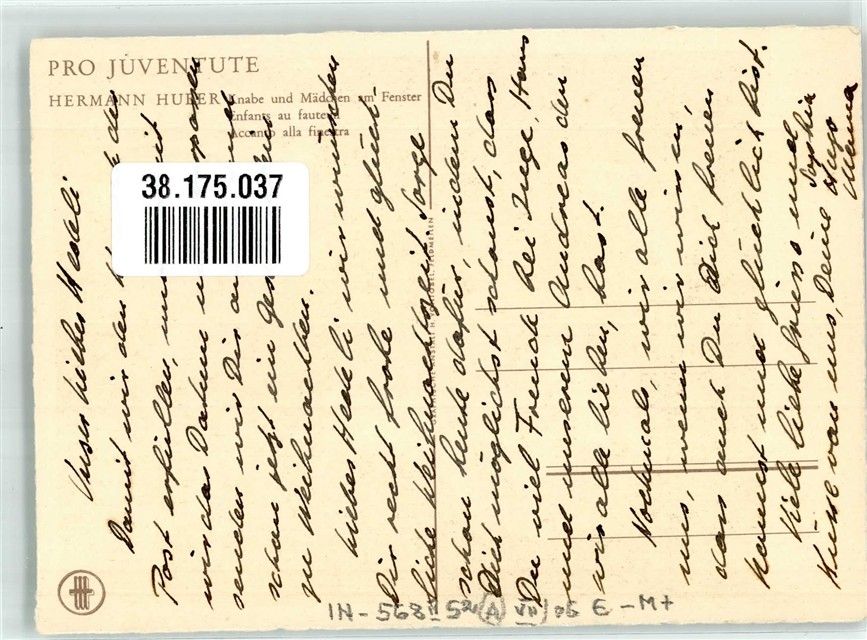 PRO JUVENTUTE
HERMANN HUBER Knabe und Mädchen am Fenster
Enfants au fauteuil
Accanto alla finestra
38.175.037
Unser liebes Hedeli
Damit wir den der
Post erfüllen, und mit
wir das Datum
senden wir Dir
schon jetzt ein
zu Weihnachten.
Liebes Hedeli wir wünschen
Dir recht frohe und glück-
liche Weihnachtszeit. Sorge
schon heute dafür, indem Du
Dich möglichst schonst, dass
Du viel Freude bei Inge, Hans
und unserem Andreas den
wir alle lieben, hast.
Nochmals, wir alle freuen
uns, wenn wir wissen,
dass auch Du Dich freuen
kannst und glücklich bist.
Viele liebe Grüsse und
Küsse von uns, Deine Sophie
Hugo
Mama
IN-568 52 (A) VII 06 E -M+